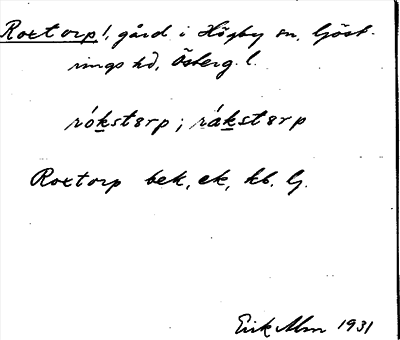 Roxtorp!, gård i Högby sn, Göst-
rings hd, Österg. l.
rókstørp ; rákstørp
Roxtorp bek, ek, kb. Gj.
Erik Alm 1931